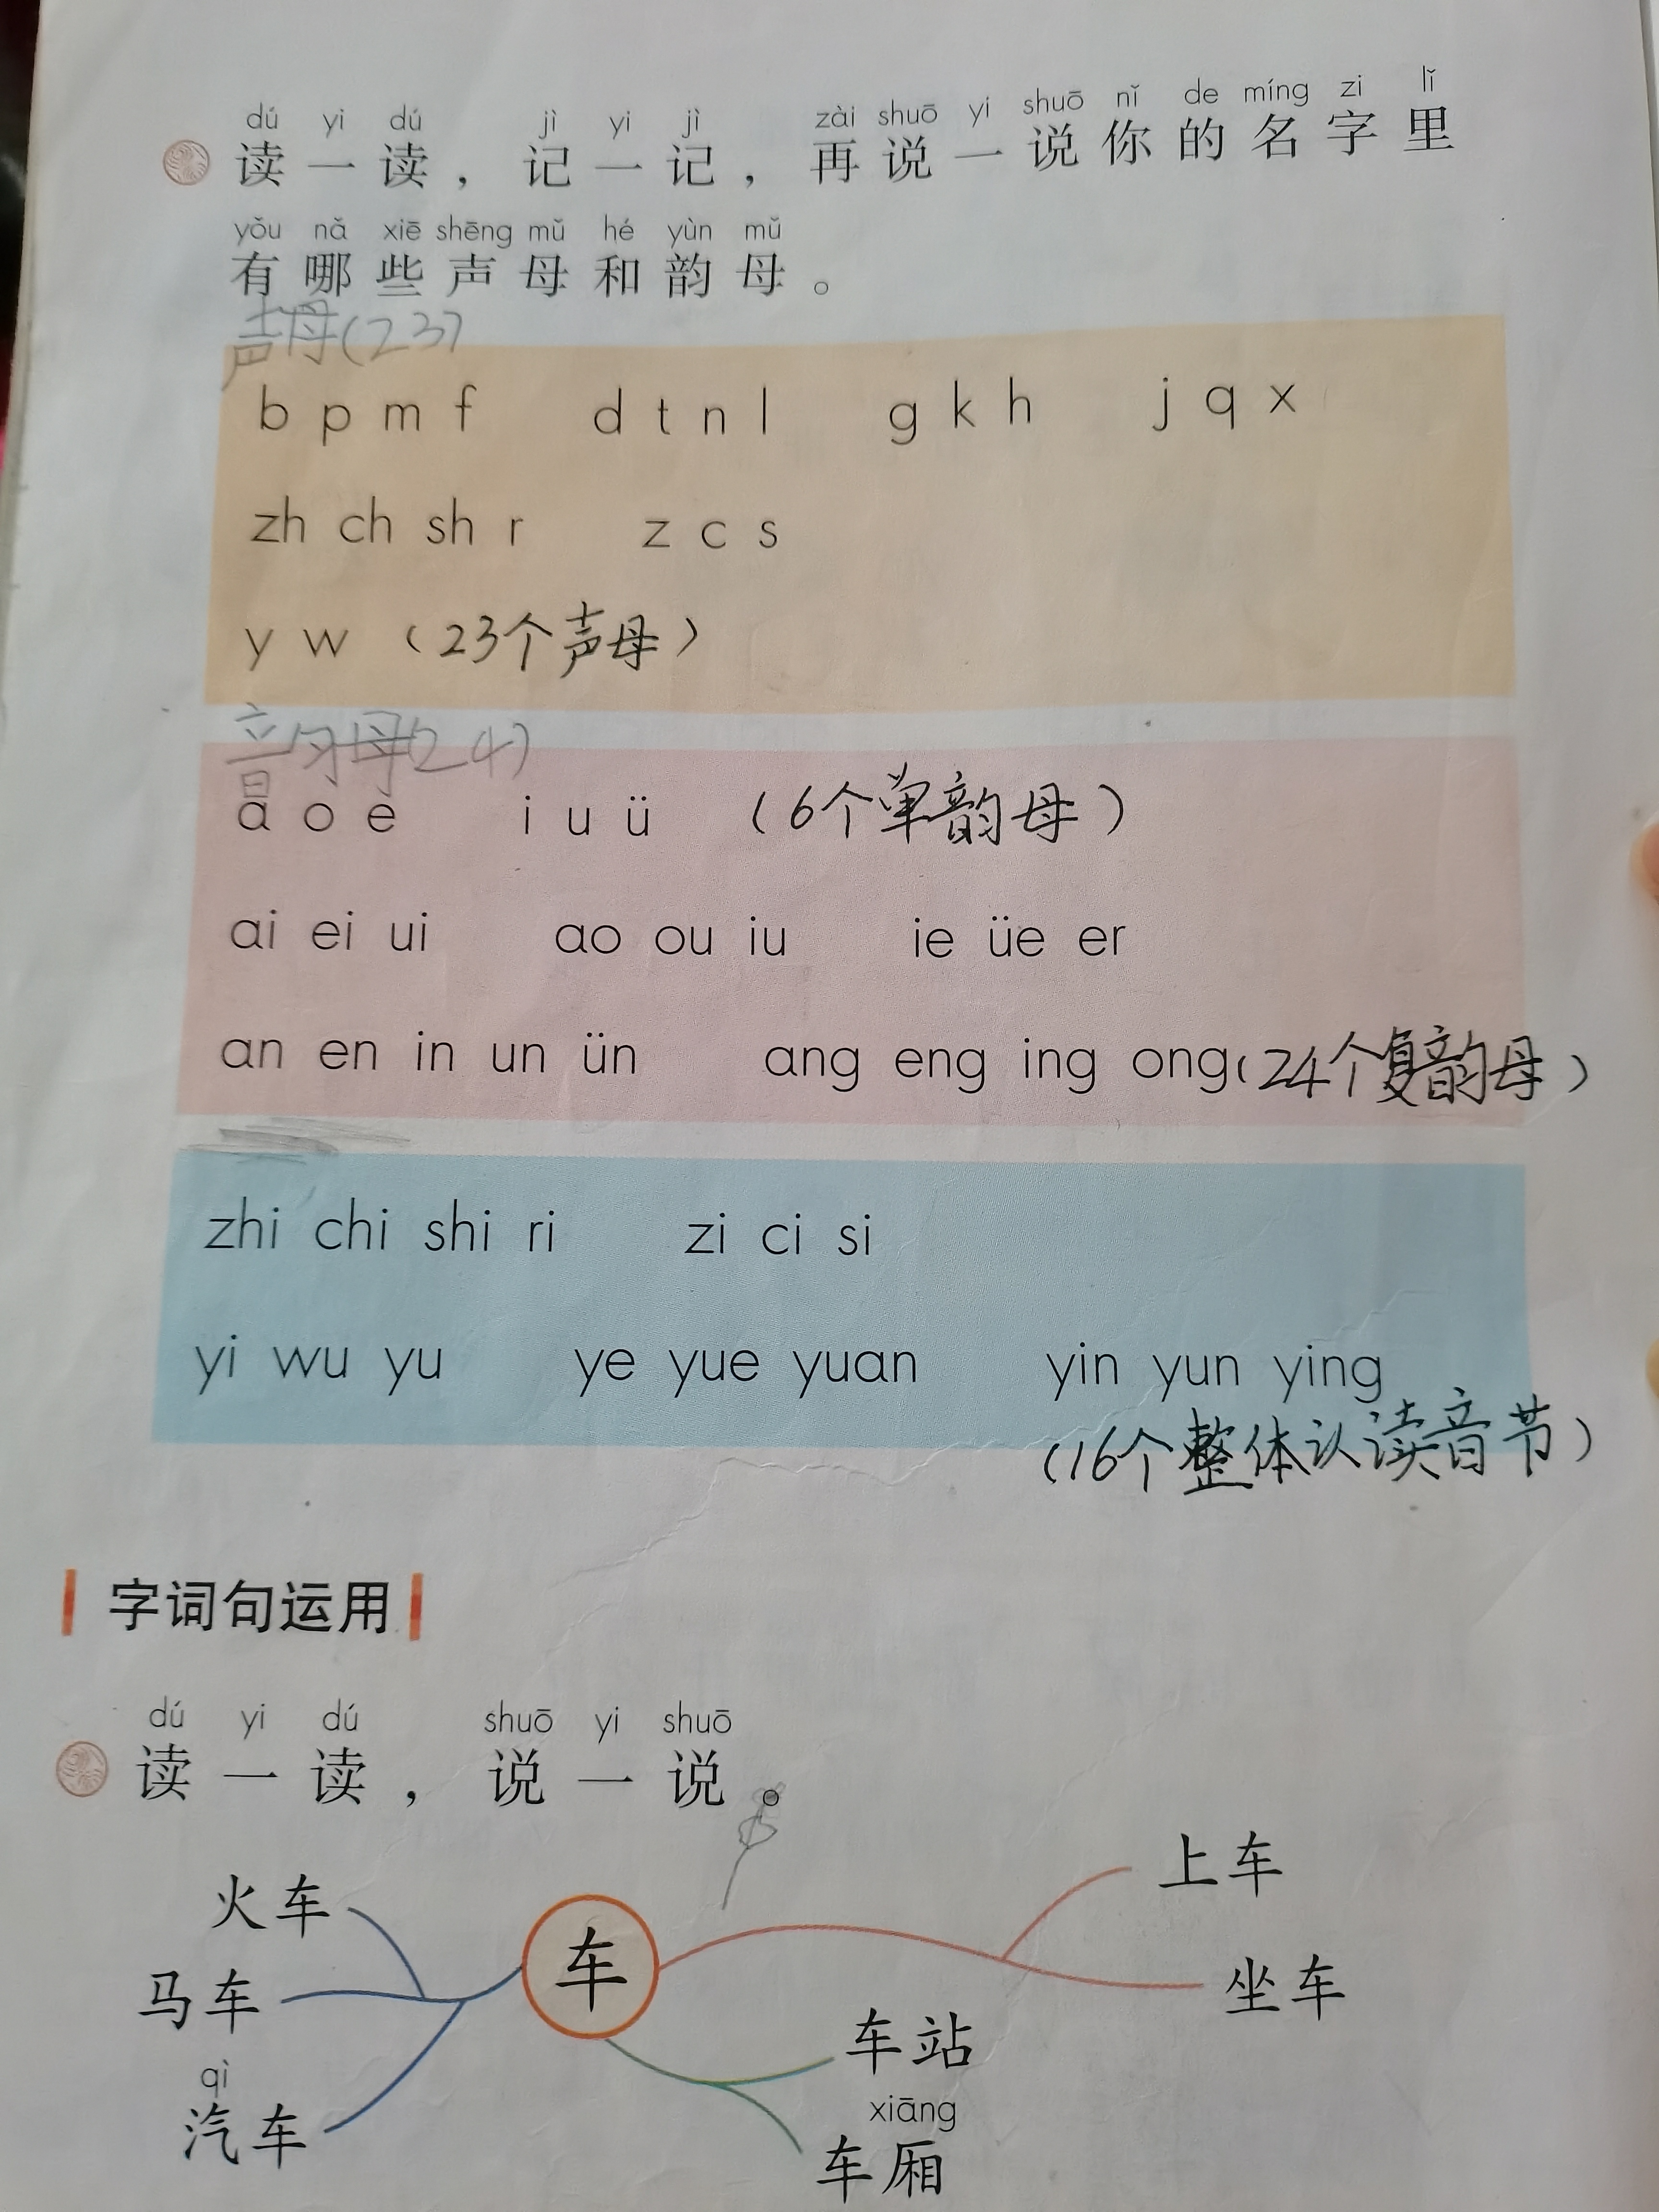 dú yi dú jì yi jì zài shuō yi shuō nǐ de míng zi lǐ
读一读，记一记，再说一说你的名字里
yǒu nǎ xiē shēng mǔ hé yùn mǔ
有哪些声母和韵母。
声母(23)
b p m f d t n l g k h j q x
zh ch sh r z c s
y w （23个声母）
韵母(24)
a o e i u ü （6个单韵母）
ai ei ui ao ou iu ie üe er
an en in un ün ang eng ing ong（24个复韵母）
zhi chi shi ri zi ci si
yi wu yu ye yue yuan yin yun ying
（16个整体认读音节）
字词句运用
dú yi dú shuō yi shuō
读一读，说一说。
上车
火车
车
坐车
马车
车站
qì
汽车
xiāng
车厢